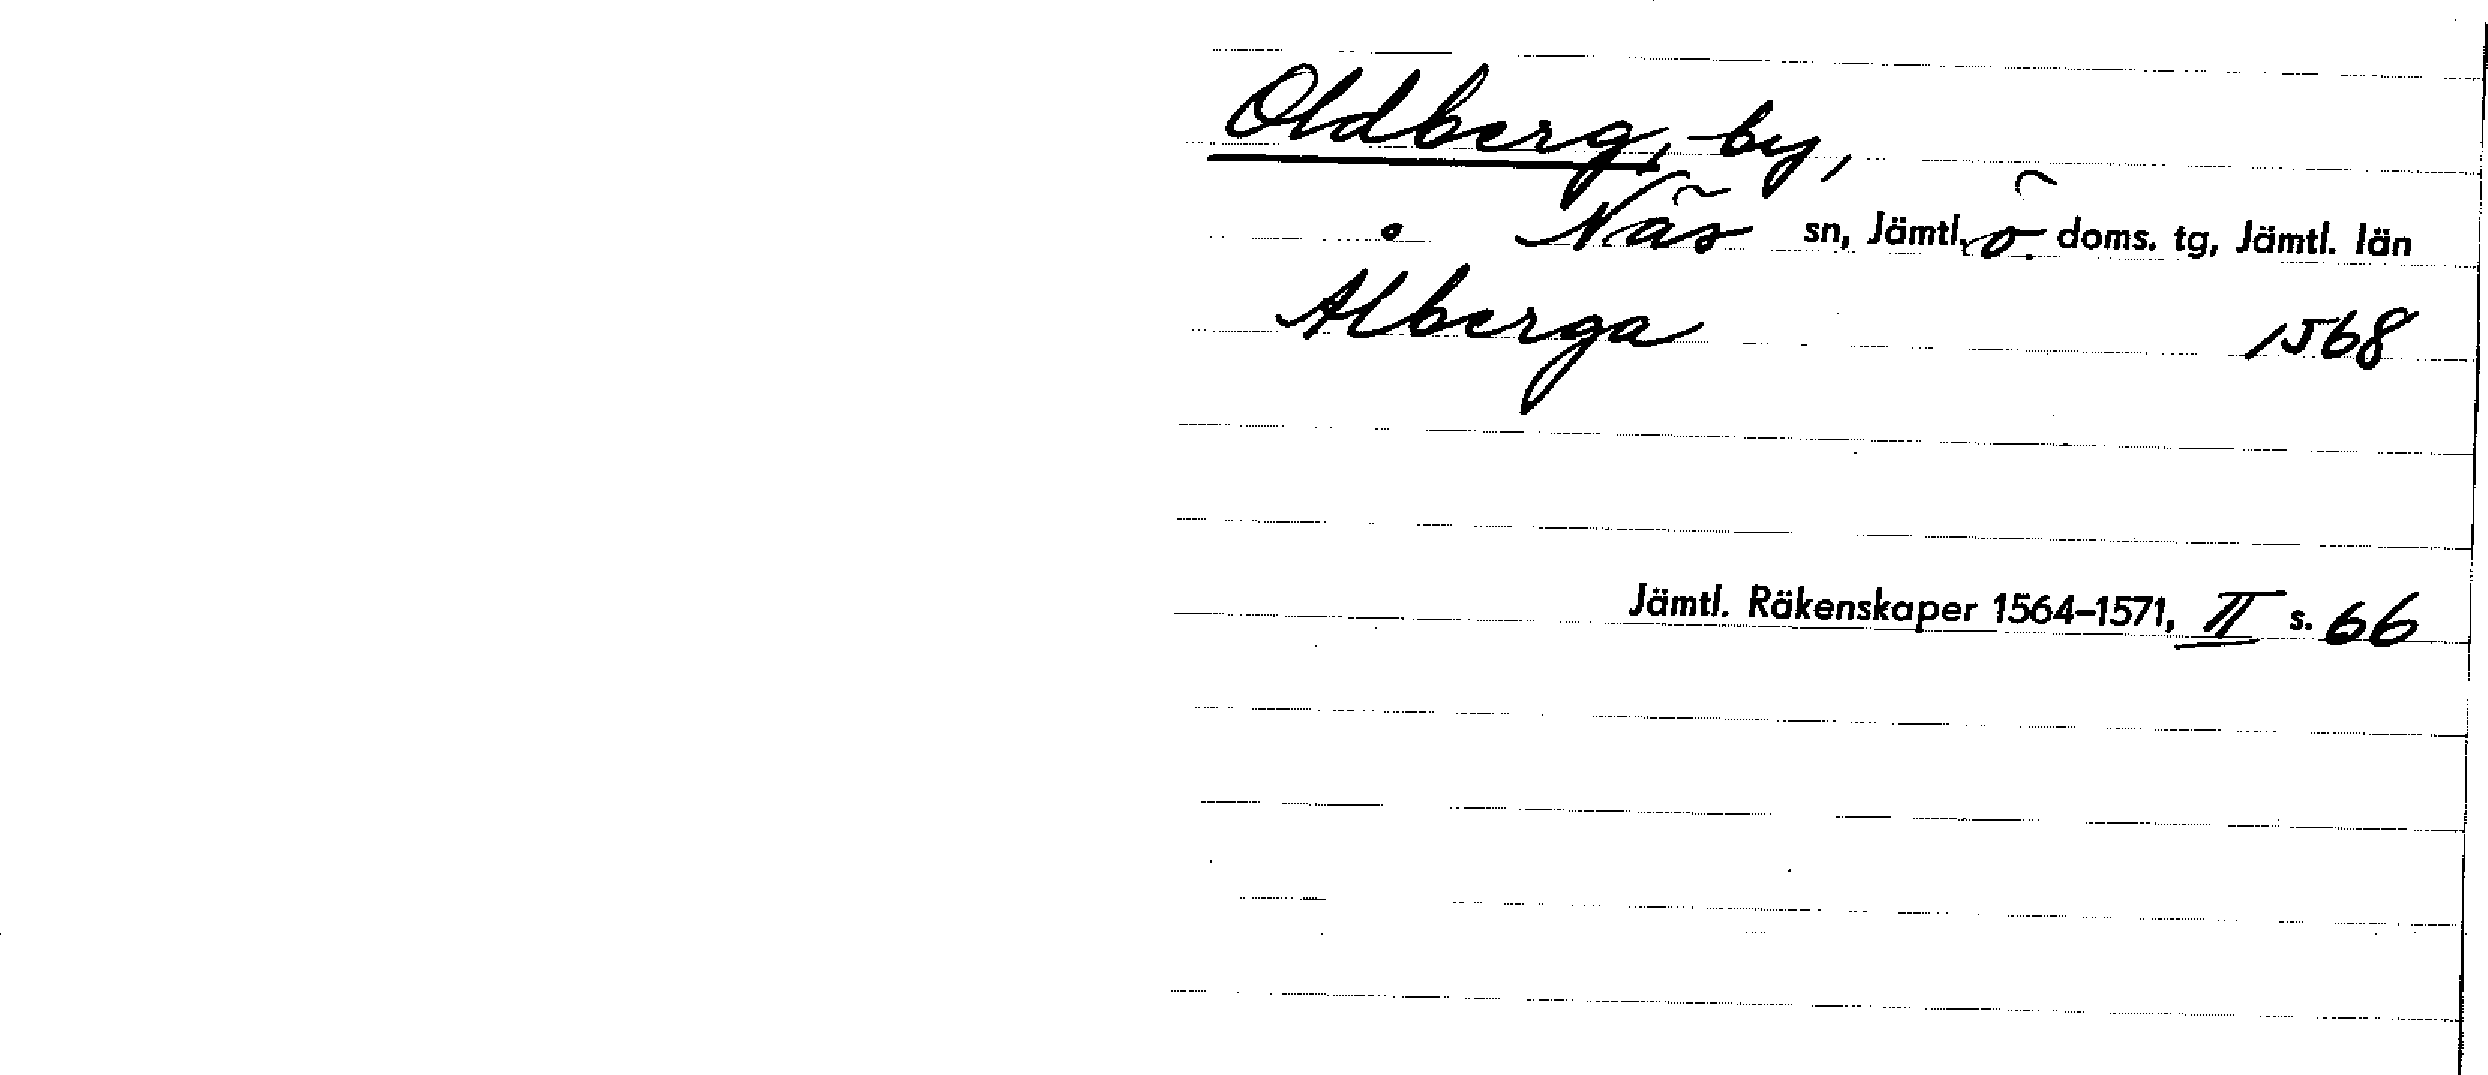 Oldberg, by,
. Näs sn, Jämtl. ö. doms. tg, Jämtl. län
Alberga 1568
Jämtl. Räkenskaper 1564–1571, II s. 66